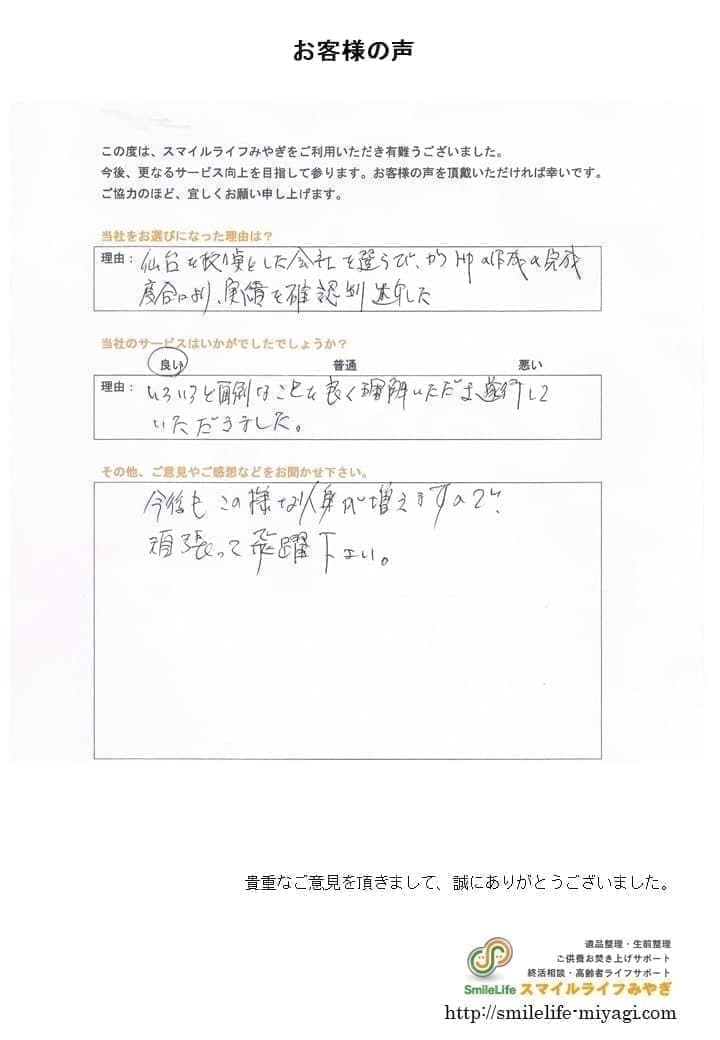 お客様の声
この度は、スマイルライフみやぎをご利用いただき有難うございました。
今後、更なるサービス向上を目指して参ります。お客様の声を頂戴いただければ幸いです。
ご協力のほど、宜しくお願い申し上げます。
当社をお選びになった理由は？
理由： 仙台を拠点とした会社を選うび、かつHPの作成の完成
度合により、実績を確認判
当社のサービスはいかがでしたでしょうか？
良い 普通 悪い
理由： いろいろと面倒なことを良く理解いただき遂行して
いただきました。
その他、ご意見やご感想などをお聞かせ下さい。
今後もこの様な が増えますので、
頑張って飛躍下さい。
貴重なご意見を頂きまして、誠にありがとうございました。
遺品整理・生前整理
ご供養お焚き上げサポート
終活相談・高齢者ライフサポート
SmileLife スマイルライフみやぎ
http://smilelife-miyagi.com